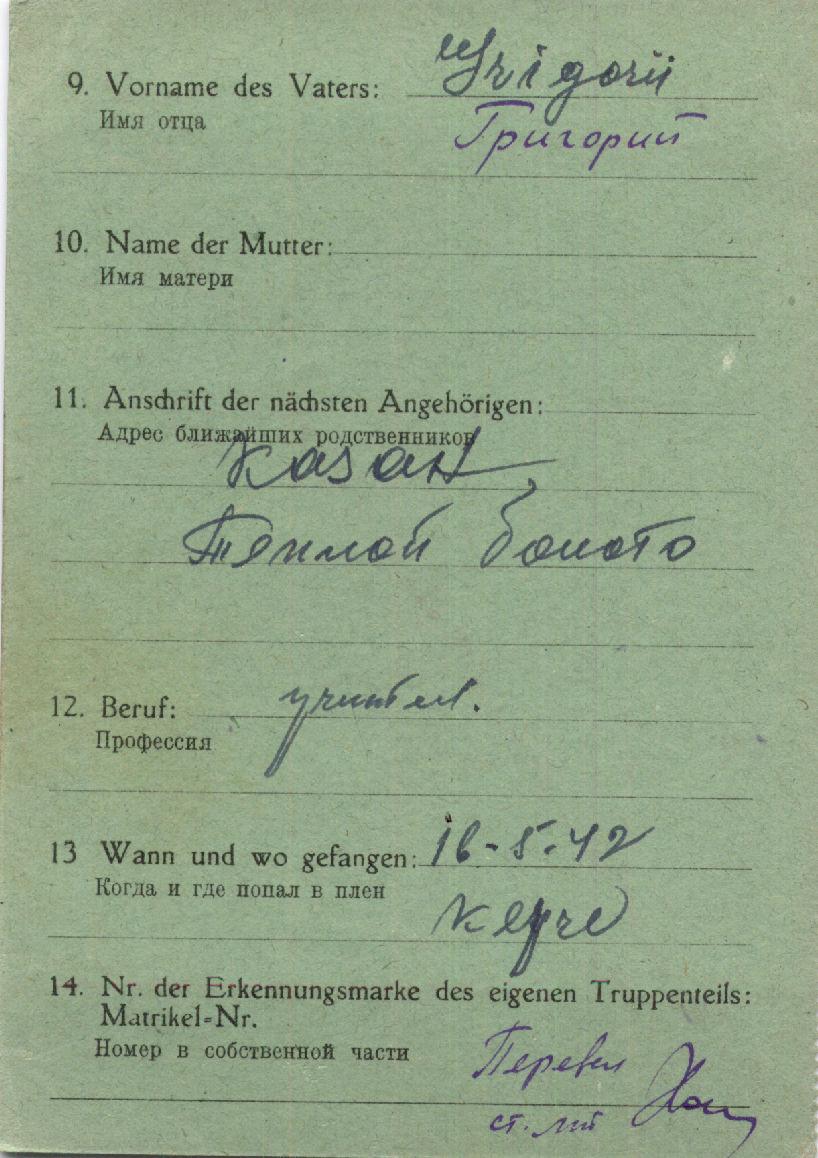 9. Vorname des Vaters: Grigorii
Имя отца Григорий
10. Name der Mutter:
Имя матери
11. Anschrift der nächsten Angehörigen:
Адрес ближайших родственников
Казан
Теплой болото
12. Beruf: учител.
Профессия
13 Wann und wo gefangen: 16-5-42
Когда и где попал в плен
Керче
14. Nr. der Erkennungsmarke des eigenen Truppenteils:
Matrikel-Nr.
Номер в собственной части
Перевел
ст. лт